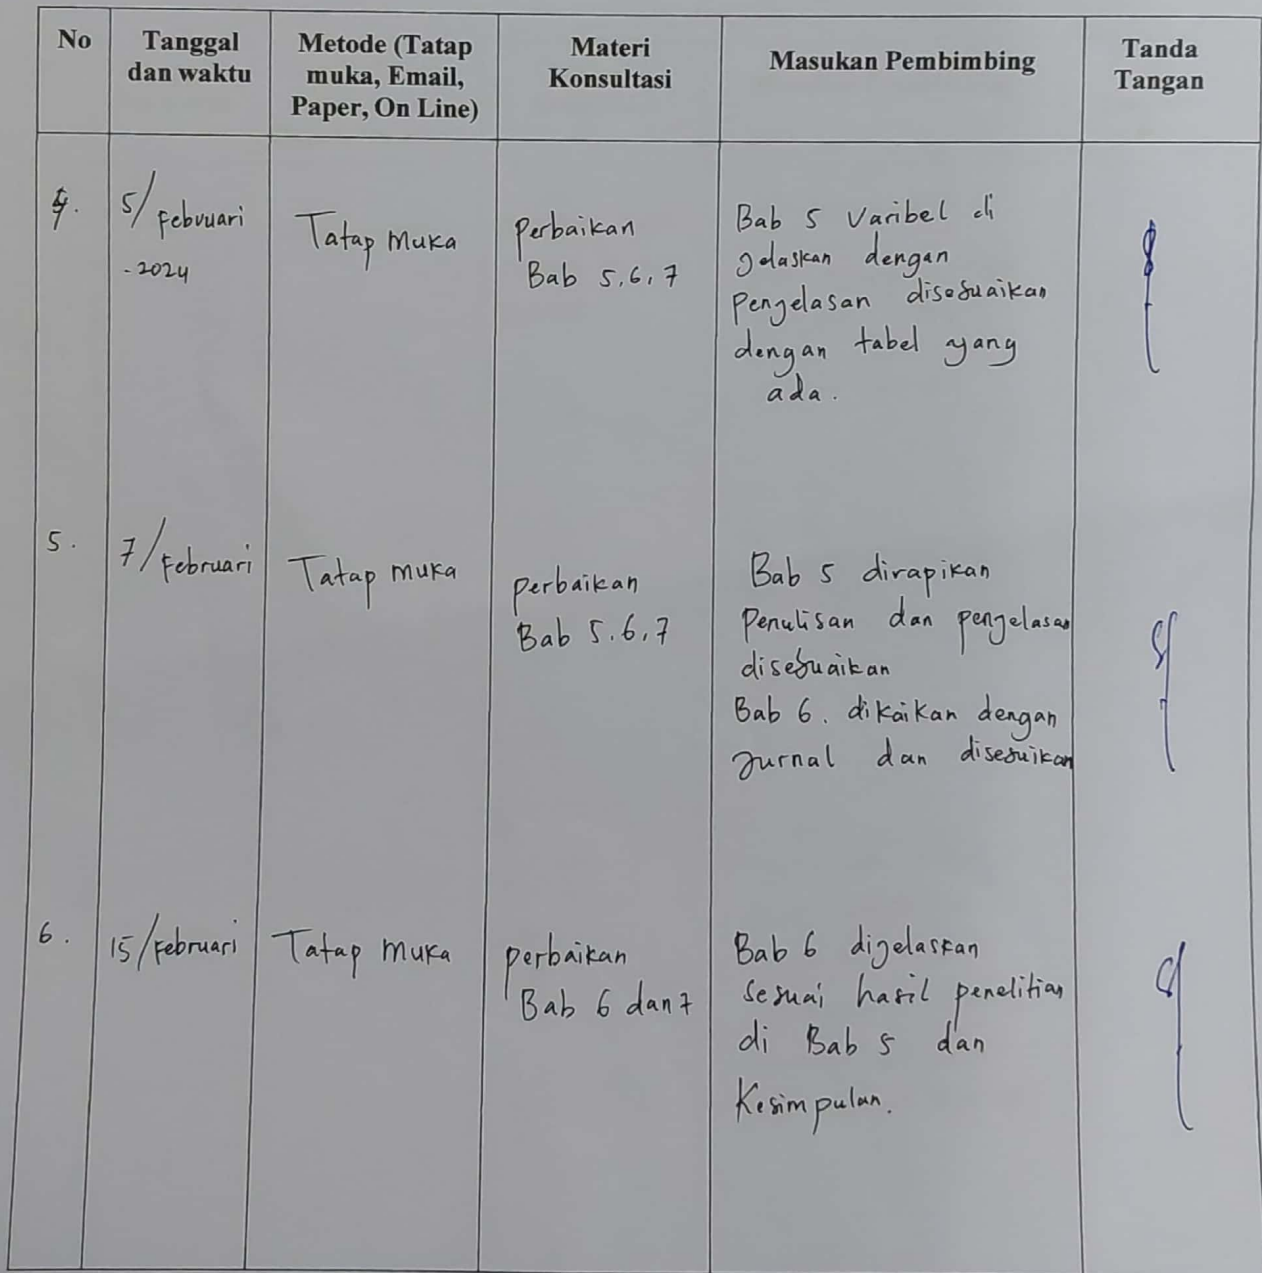 No
Tanggal
dan waktu
Metode (Tatap
muka, Email,
Paper, On Line)
Materi
Konsultasi
Masukan Pembimbing
Tanda
Tangan
4.
5/Februari
-2024
Tatap muka
Perbaikan
Bab 5,6,7
Bab 5 Varibel di
jelaskan dengan
Penjelasan disesuaikan
dengan tabel yang
ada.
5.
7/Februari
Tatap muka
Perbaikan
Bab 5.6,7
Bab 5 dirapikan
Penulisan dan penjelasan
disesuaikan
Bab 6. dikaikan dengan
Jurnal dan disesuikan
6.
15/Februari
Tatap muka
perbaikan
Bab 6 dan 7
Bab 6 dijelaskan
sesuai hasil penelitian
di Bab 5 dan
Kesimpulan.